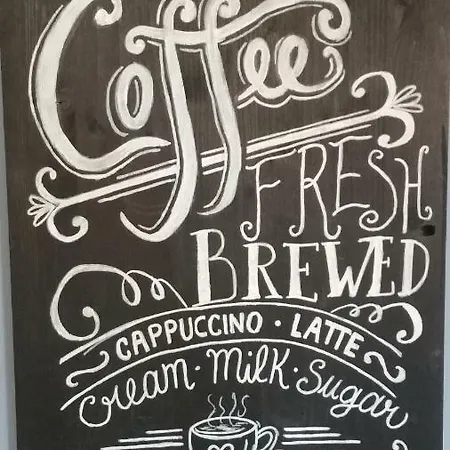 Coffee
FRESH
BREWED
CAPPUCCINO · LATTE
Cream · Milk · Sugar